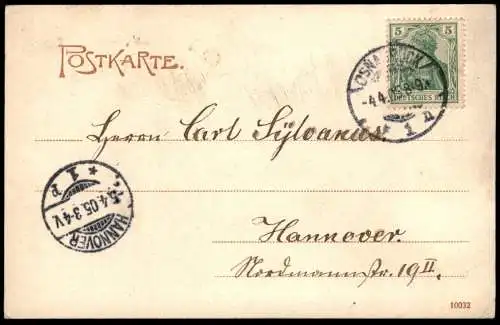 POSTKARTE.
5 5
DEUTSCHES REICH
OSNABRÜCK
-4.4.05.8-9
* 1 n
Herrn Carl Sÿlvanus.
* 1 P
5.4.05.3-4V.
HANNOVER.
Hannover.
Nordmannstr. 19 II.
10032